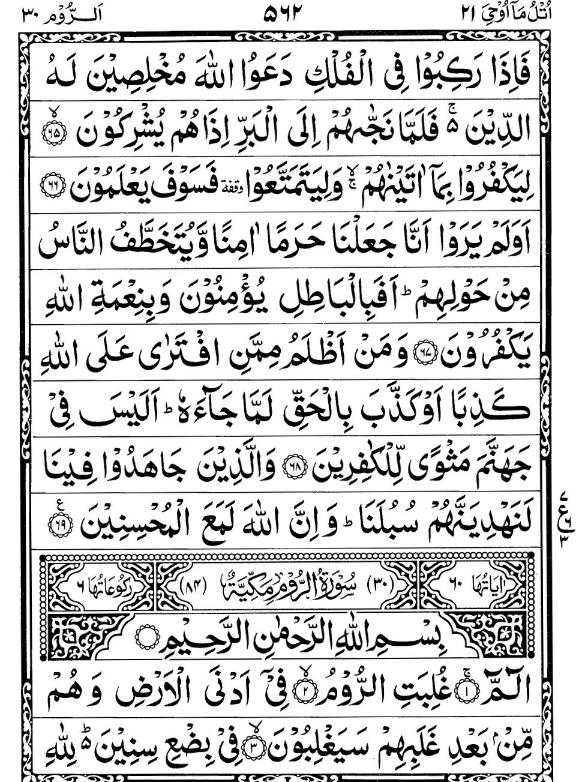 اُتْلُ مَآ اُوْحِیَ ۲۱
۵۶۲
اَلرُّوْم ۳۰
فَاِذَا رَكِبُوْا فِی الْفُلْكِ دَعَوُا اللّٰهَ مُخْلِصِیْنَ لَهُ
الدِّیْنَ ۵ۚ فَلَمَّا نَجّٰىهُمْ اِلَى الْبَرِّ اِذَا هُمْ یُشْرِكُوْنَ ۙ۝۶۵
لِیَكْفُرُوْا بِمَاۤ اٰتَیْنٰهُمْ ۙۚ وَلِیَتَمَتَّعُوْا وقفة فَسَوْفَ یَعْلَمُوْنَ ۝۶۶
اَوَلَمْ یَرَوْا اَنَّا جَعَلْنَا حَرَمًا اٰمِنًا وَّیُتَخَطَّفُ النَّاسُ
مِنْ حَوْلِهِمْ ؕ اَفَبِالْبَاطِلِ یُؤْمِنُوْنَ وَبِنِعْمَةِ اللّٰهِ
یَكْفُرُوْنَ ۝۶۷ وَمَنْ اَظْلَمُ مِمَّنِ افْتَرٰى عَلَى اللّٰهِ
كَذِبًا اَوْ كَذَّبَ بِالْحَقِّ لَمَّا جَآءَهٗ ؕ اَلَیْسَ فِیْ
جَهَنَّمَ مَثْوًى لِّلْكٰفِرِیْنَ ۝۶۸ وَالَّذِیْنَ جَاهَدُوْا فِیْنَا
لَنَهْدِیَنَّهُمْ سُبُلَنَا ؕ وَاِنَّ اللّٰهَ لَمَعَ الْمُحْسِنِیْنَ ۝۶۹ ع
۷
ع ۶
۳
اٰیَاتُهَا ۶۰
(۳۰) سُوْرَةُ الرُّوْمِ مَكِّیَّةٌ (۸۴)
رُكُوْعَاتُهَا ۶
بِسْمِ اللّٰهِ الرَّحْمٰنِ الرَّحِیْمِ ۝
الٓمّٓ ۚ۝۱ غُلِبَتِ الرُّوْمُ ۙ۝۲ فِیْۤ اَدْنَى الْاَرْضِ وَهُمْ
مِّنْۢ بَعْدِ غَلَبِهِمْ سَیَغْلِبُوْنَ ۙ۝۳ فِیْ بِضْعِ سِنِیْنَ ۵ؕ لِلّٰهِ